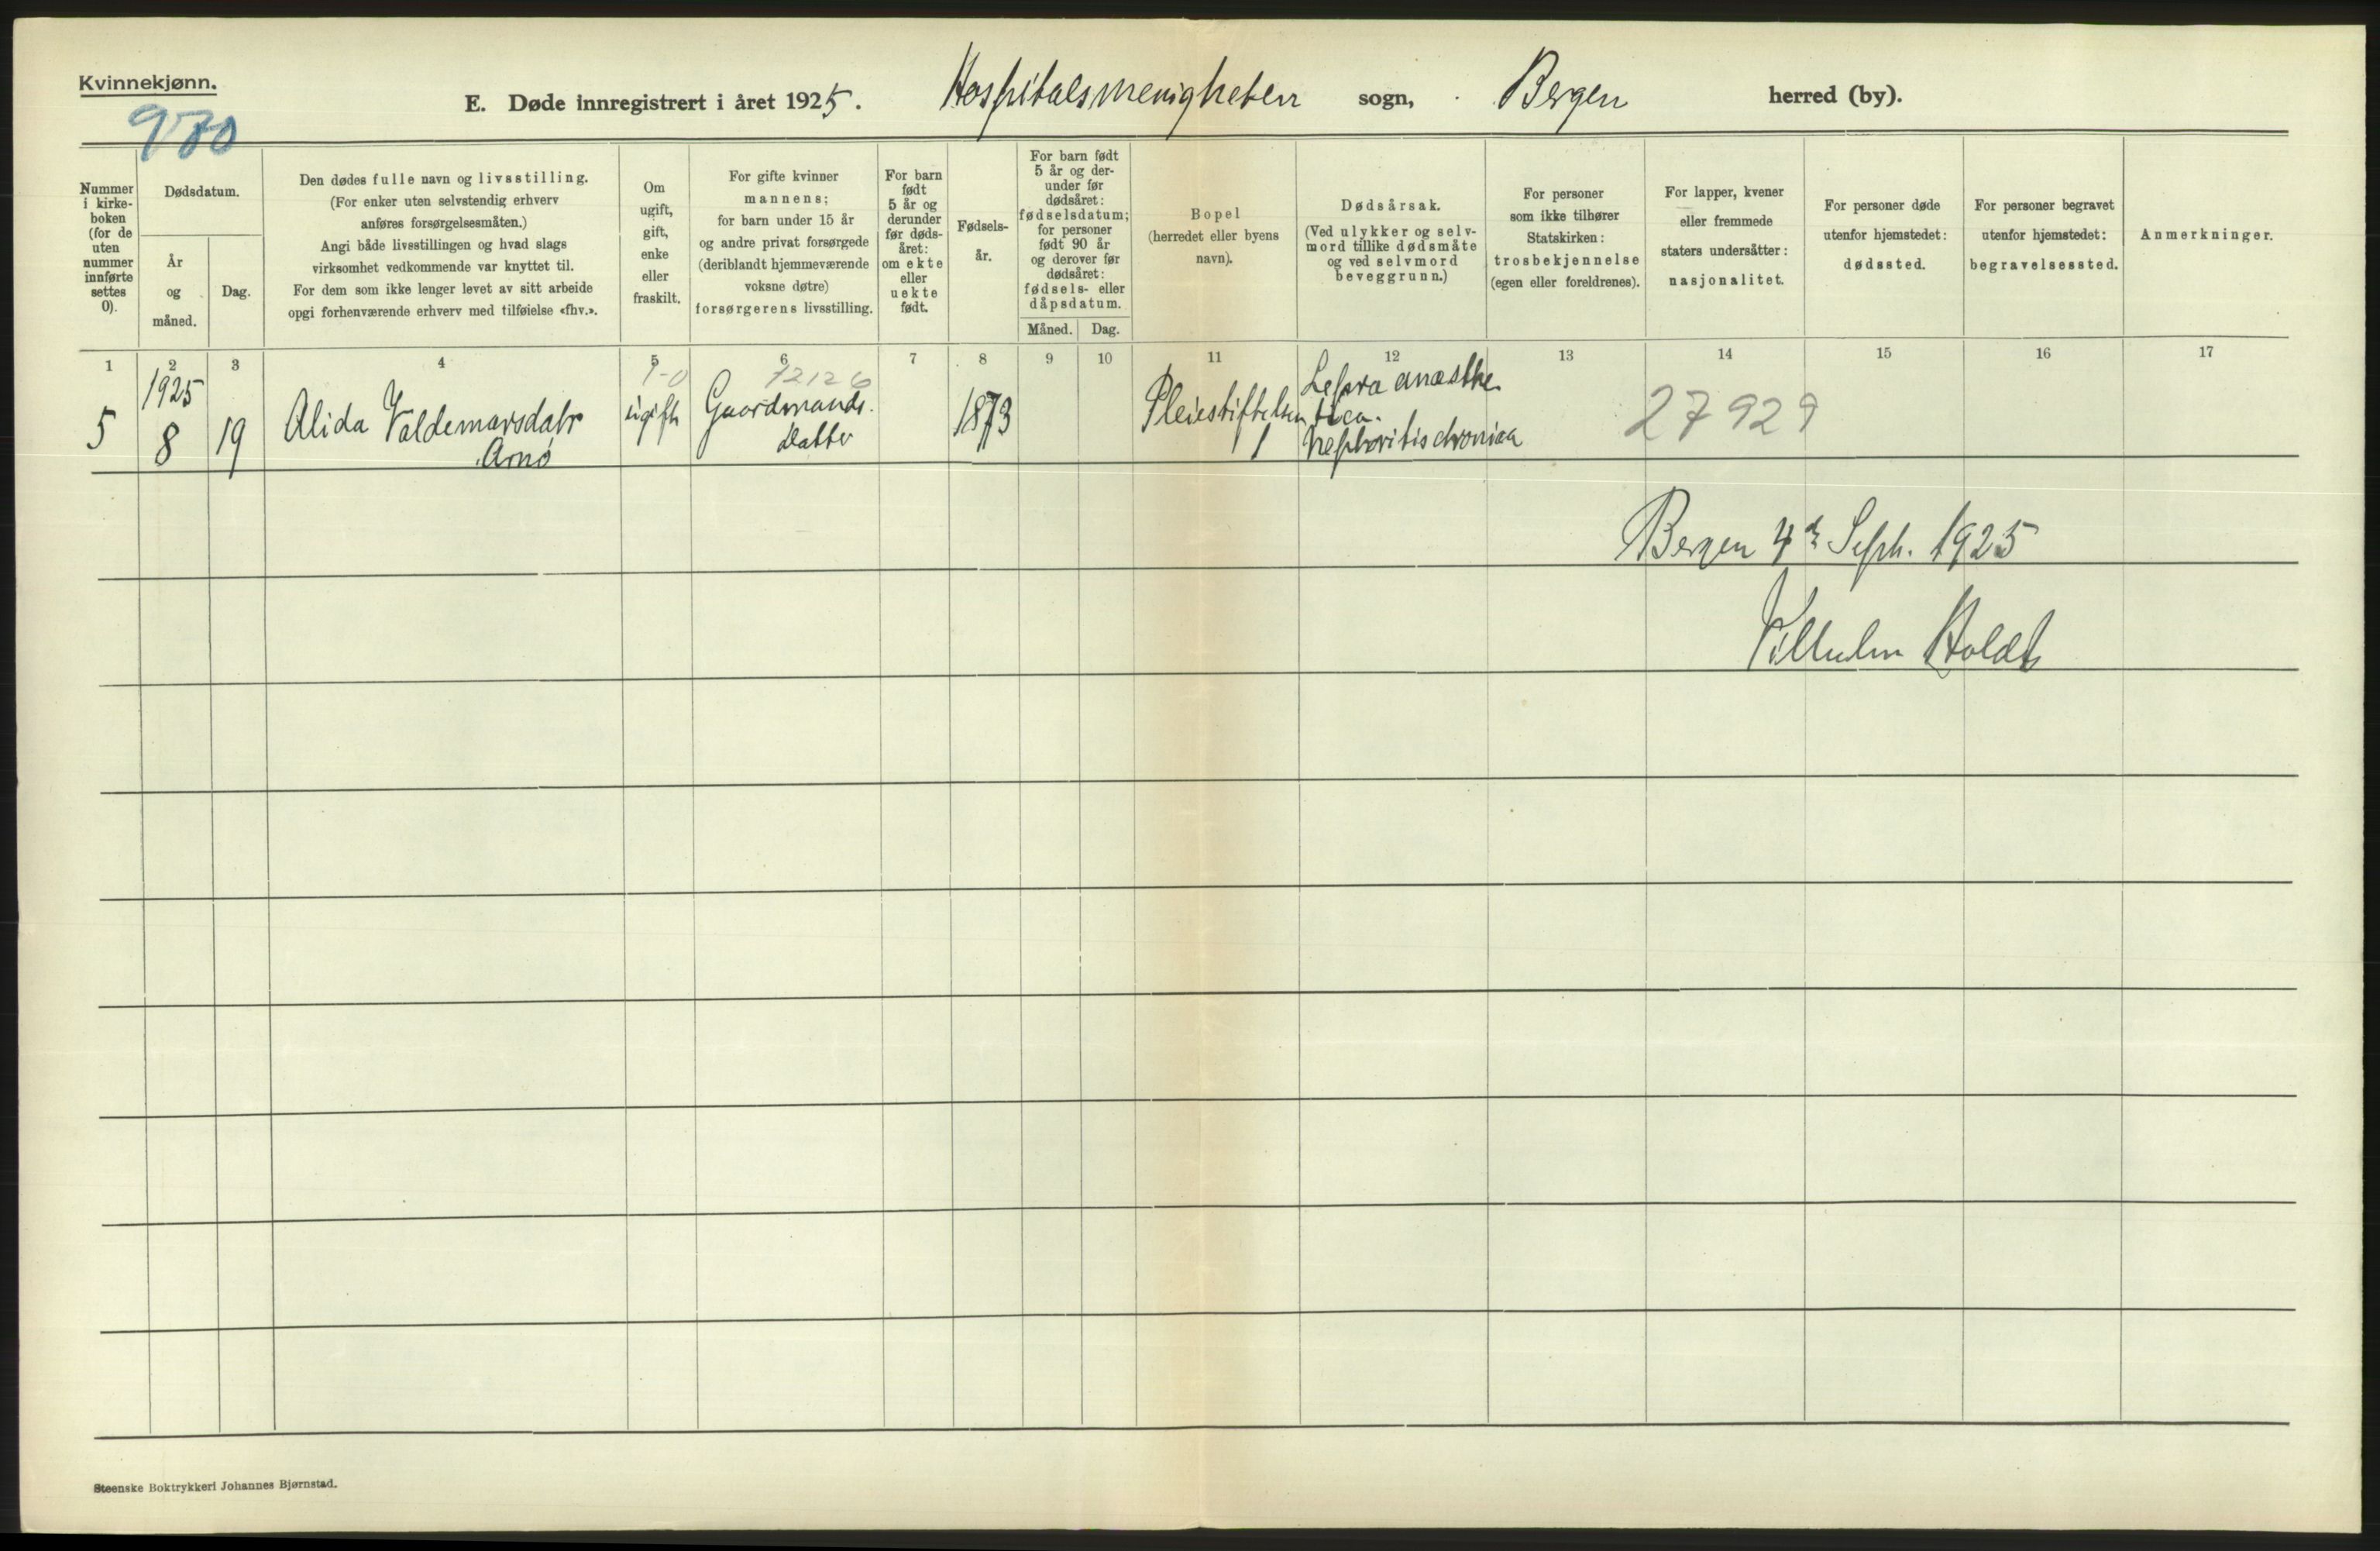 Kvinnekjønn.
970
E. Døde innregistrert i året 1925. Hospitalsmenigheten sogn, Bergen herred (by).
Nummer
i kirke-
boken
(for de
uten
nummer
innførte
settes
0).
Dødsdatum.
År
og
måned.
Dag.
Den dødes fulle navn og livsstilling.
(For enker uten selvstendig erhverv
anføres forsørgelsesmåten.)
Angi både livsstillingen og hvad slags
virksomhet vedkommende var knyttet til.
For dem som ikke lenger levet av sitt arbeide
opgi forhenværende erhverv med tilføielse «fhv.».
Om
ugift,
gift,
enke
eller
fraskilt.
For gifte kvinner
mannens;
for barn under 15 år
og andre privat forsørgede
(deriblandt hjemmeværende
voksne døtre)
forsørgerens livsstilling.
For barn
født
5 år og
derunder
før døds-
året:
om ekte
eller
uekte
født.
Fødsels-
år.
For barn født
5 år og der-
under før
dødsåret:
fødselsdatum;
for personer
født 90 år
og derover før
dødsåret:
fødsels- eller
dåpsdatum.
Måned.
Dag.
Bopel
(herredet eller byens
navn).
Dødsårsak.
(Ved ulykker og selv-
mord tillike dødsmåte
og ved selvmord
beveggrunn.)
For personer
som ikke tilhører
Statskirken:
trosbekjennelse
(egen eller foreldrenes).
For lapper, kvener
eller fremmede
staters undersåtter:
nasjonalitet.
For personer døde
utenfor hjemstedet:
dødssted.
For personer begravet
utenfor hjemstedet:
begravelsessted.
Anmerkninger.
1 2 3 4 5 6 7 8 9 10 11 12 13 14 15 16 17
5
1925
8
19
Alida Valdemarsdatr
Arnø
ugift
Gaardmands.
datter
1873
Pleiestiftelsen
1
Lepra anæsthe
tica.
Nephritis chronica
27929
Bergen 4de Septr. 1925
Vilhelm Holdt
Steenske Boktrykkeri Johannes Bjørnstad.